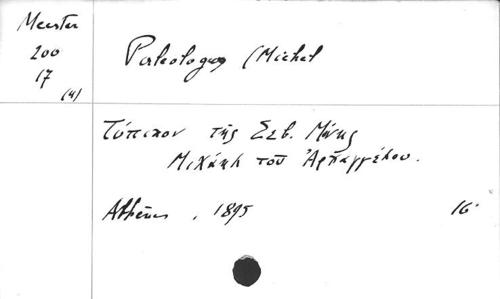 Meester
200
17
(4)
Paleologus (Michel
Τύπικον τῆς Σεβ. Μόνης
Μιχάηλ τοῦ Ἀρπαγγέλου.
Athènes, 1895
16°